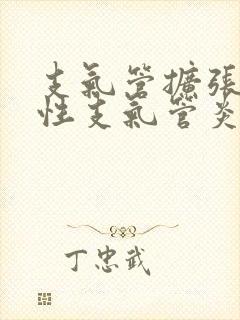 支氣管擴張
性支氣管炎
丁忠武